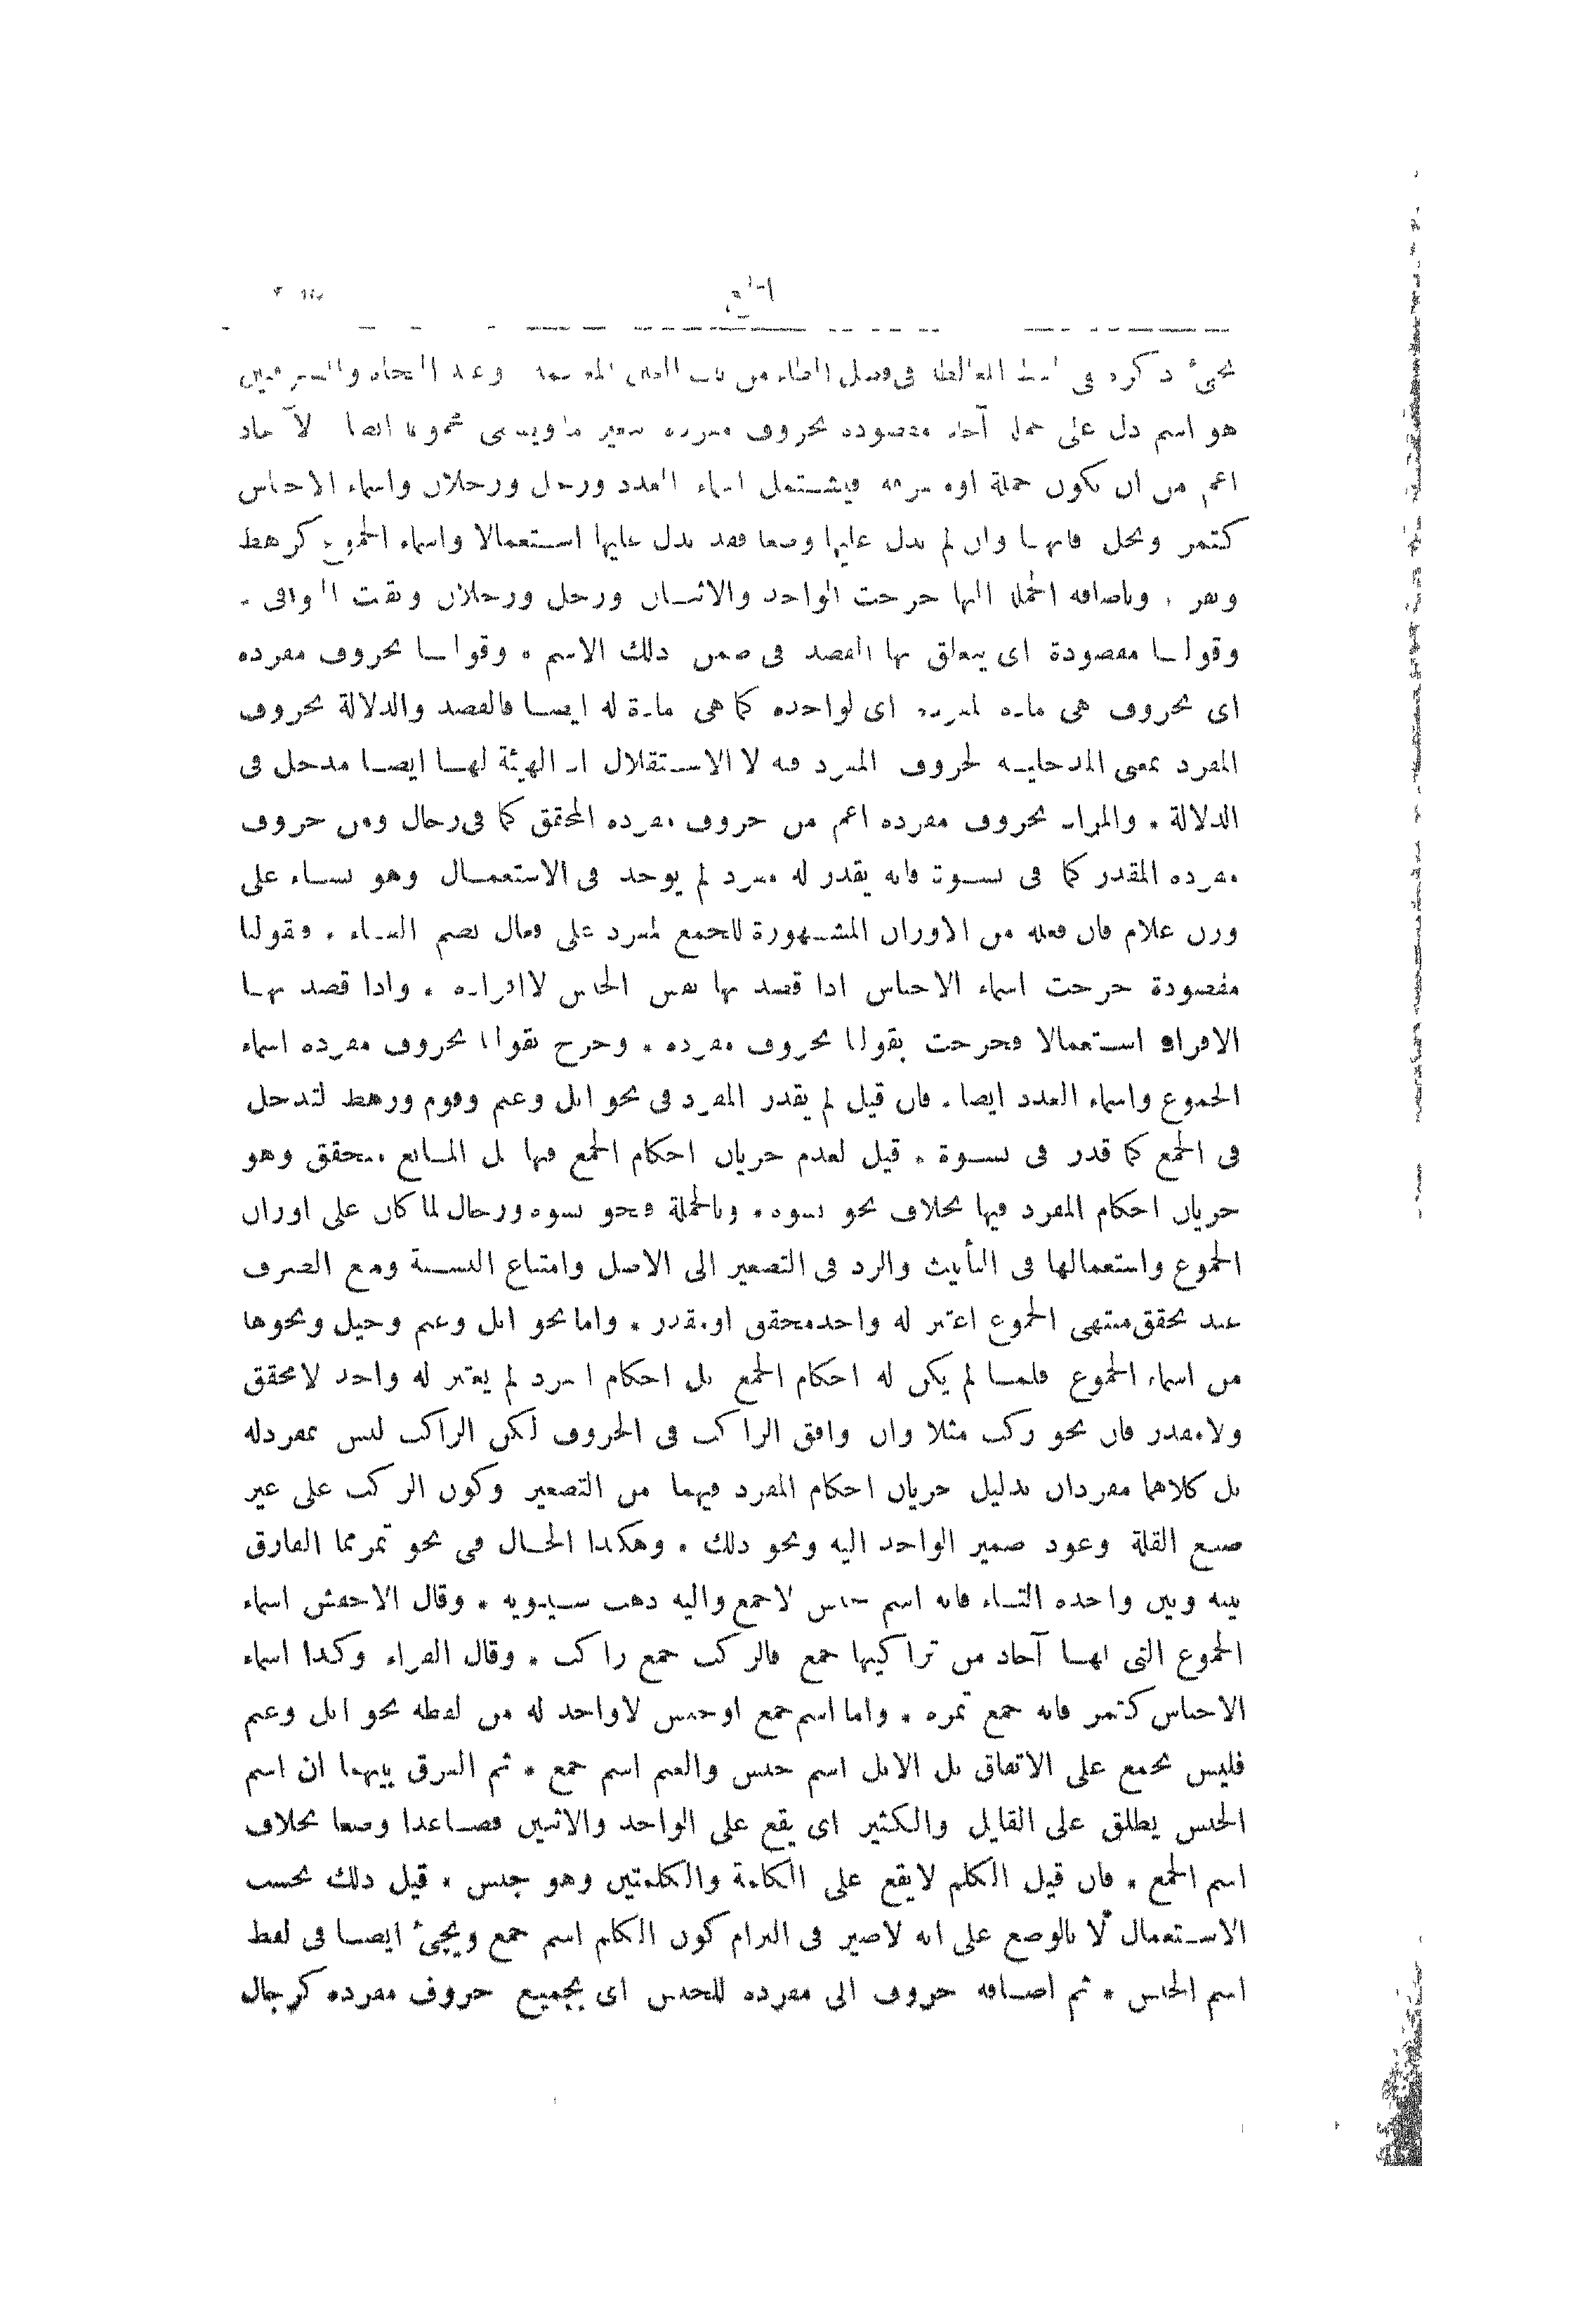 الجمع
يجئ ذكره في لفظ المغالطة في فصل الطاء من باب الغين المعجمة وعند النحاة والصرفيين
هو اسم دل على جملة آحاد مقصودة بحروف مفرده بتغير ما ويسمى مجموعا ايضا الآحاد
اعم من ان يكون جملة او متفرقة فيشتمل اسماء العدد ورجل ورجلان واسماء الاجناس
كتمر ونخل فانها وان لم تدل عليها وضعا فقد تدل عليها استعمالا واسماء الجموع كرهط
ونفر . وباضافة الجملة اليها خرجت الواحد والاثنان ورجل ورجلان وبقيت البواقى .
وقولنا مقصودة اى يتعلق بها القصد فى ضمن ذلك الاسم . وقولنا بحروف مفرده
اى بحروف هى مادة لمفرده اى لواحده كما هى مادة له ايضا فالقصد والدلالة بحروف
المفرد بمعنى المدخلية لحروف المفرد فيه لا الاستقلال اذ الهيئة لها ايضا مدخل فى
الدلالة . والمراد بحروف مفرده اعم من حروف مفرده المحقق كما فى رجال ومن حروف
مفرده المقدر كما فى نسوة فانه يقدر له مفرد لم يوجد فى الاستعمال وهو نساء على
وزن غلام فان فعلة من الاوزان المشهورة للجمع لمفرد على فعال بضم الفاء . فقولنا
مقصودة خرجت اسماء الاجناس اذا قصد بها نفس الجنس لا افراده . واذا قصد بها
الافراد استعمالا فخرجت بقولنا بحروف مفرده . وخرج بقولنا بحروف مفرده اسماء
الجموع واسماء العدد ايضا . فان قيل لم يقدر المفرد فى نحو ابل وغنم وقوم ورهط لتدخل
فى الجمع كما قدر فى نسوة . قيل لعدم جريان احكام الجمع فيها بل المانع متحقق وهو
جريان احكام المفرد فيها بخلاف نحو نسوة . وبالجملة فنحو نسوة ورجال لما كان على اوزان
الجموع واستعمالها فى التأنيث والرد فى التصغير الى الاصل وامتناع النسبة ومنع الصرف
عند تحقق منتهى الجموع اعتبر له واحد محقق او مقدر . واما نحو ابل وغنم وخيل ونحوها
من اسماء الجموع فلما لم يكن له احكام الجمع بل احكام المفرد لم يعتبر له واحد لا محقق
ولا مقدر فان نحو ركب مثلا وان وافق الراكب فى الحروف لكن الراكب ليس بمفرد له
بل كلاهما مفردان بدليل جريان احكام المفرد فيهما من التصغير وكون الركب على غير
صيغ القلة وعود ضمير الواحد اليه ونحو ذلك . وهكذا الحال فى نحو تمر مما الفارق
بينه وبين واحده التاء فانه اسم جنس لا جمع واليه ذهب سيبويه . وقال الاخفش اسماء
الجموع التى لها آحاد من تراكيبها جمع فالركب جمع راكب . وقال الفراء وكذا اسماء
الاجناس كتمر فانه جمع تمره . واما اسم جمع او جنس لا واحد له من لفظه نحو ابل وغنم
فليس بجمع على الاتفاق بل الابل اسم جنس والغنم اسم جمع . ثم الفرق بينهما ان اسم
الجنس يطلق على القليل والكثير اى يقع على الواحد والاثنين فصاعدا وضعا بخلاف
اسم الجمع . فان قيل الكلم لا يقع على الكلمة والكلمتين وهو جنس . قيل ذلك بحسب
الاستعمال لا بالوضع على انه لا ضير فى التزام كون الكلم اسم جمع ويجئ ايضا فى لفظ
اسم الجنس . ثم اضافة حروف الى مفرده للجنس اى بجميع حروف مفرده كرجال